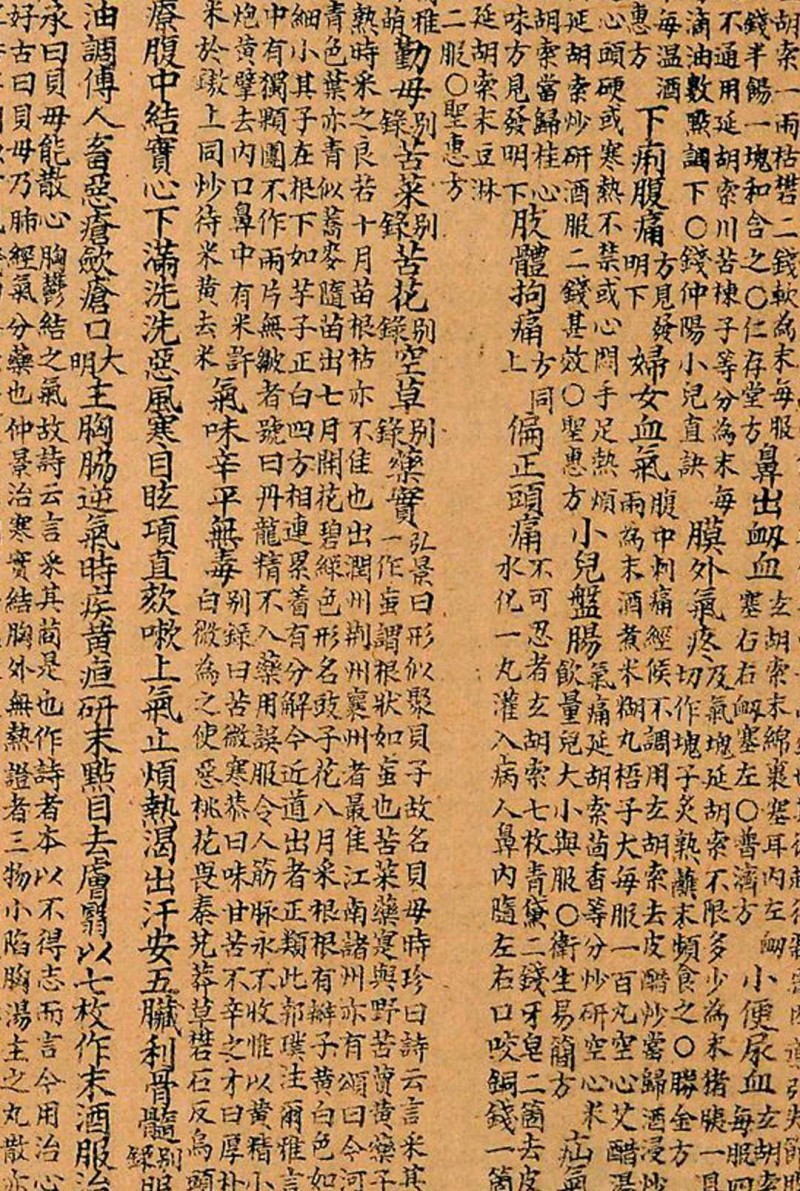 胡索一兩枯礬二錢軟為末每服
錢半餳一塊和含之〇仁存堂方
鼻出衄血
玄胡索末綿裹塞耳內左衄
塞右右衄塞左〇普濟方
小便尿血
玄胡索
每服四
不通用延胡索川苦楝子等分為末每
滴油數點調下〇錢仲陽小兒直訣
膜外氣疼
及氣塊延胡索不限多少為末猪胰一具
切作塊子炙熟蘸末頻食之〇勝金方
每温酒
惠方
下痢腹痛
方見發
明下
婦女血氣
腹中刺痛經候不調用玄胡索去皮醋炒當歸酒浸炒
兩為末酒煮米糊丸梧子大每服一百丸空心艾醋湯
心頭硬或寒熱不禁或心悶手足熱煩
延胡索炒研酒服二錢甚效〇聖惠方
小兒盤腸
氣痛延胡索茴香等分炒研空心米
飲量兒大小與服〇衛生易簡方
疝氣
胡索當歸桂心
味方見發明下
肢體拘痛
方同
上
偏正頭痛
不可忍者玄胡索七枚青黛二錢牙皂二箇去皮
水化一丸灌入病人鼻內隨左右口咬銅錢一箇
延胡索末豆淋
二服〇聖惠方
勤母別錄苦菜別錄苦花別錄空草別錄藥實
弘景曰形似聚貝子故名貝母時珍曰詩云言采其
一作䖟謂根狀如䖟也苦菜藥實與野苦蕒黃藥子
熱時采之良若十月苗根枯亦不佳也出潤州荆州襄州者最佳江南諸州亦有頌曰今河
青色葉亦青似蕎麥隨苗出七月開花碧綠色形名鼓子花八月采根根有瓣子黃白色如
細小其子在根下如芋子正白四方相連累着有分解今近道出者正類此郭璞注爾雅言
中有獨顆團不作兩片無皺者號曰丹龍精不入藥用誤服令人筋脉永不收惟以黃精小
炮黃擘去內口鼻中有米許
米於鏊上同炒待米黃去米
氣味辛平無毒
別錄曰苦微寒恭曰味甘苦不辛之才曰厚朴
白微為之使惡桃花畏秦艽莽草礬石反烏頭
療腹中結實心下滿洗洗惡風寒目眩項直欬嗽上氣止煩熱渴出汗安五臟利骨髓別錄服
油調傅人畜惡瘡斂瘡口大明主胸脇逆氣時疾黃疸研末點目去膚翳以七枚作末酒服治
永曰貝母能散心胸鬱結之氣故詩云言采其莔是也作詩者本以不得志而言今用治心
好古曰貝母乃肺經氣分藥也仲景治寒實結胸外無熱證者三物小陷胸湯主之丸散亦